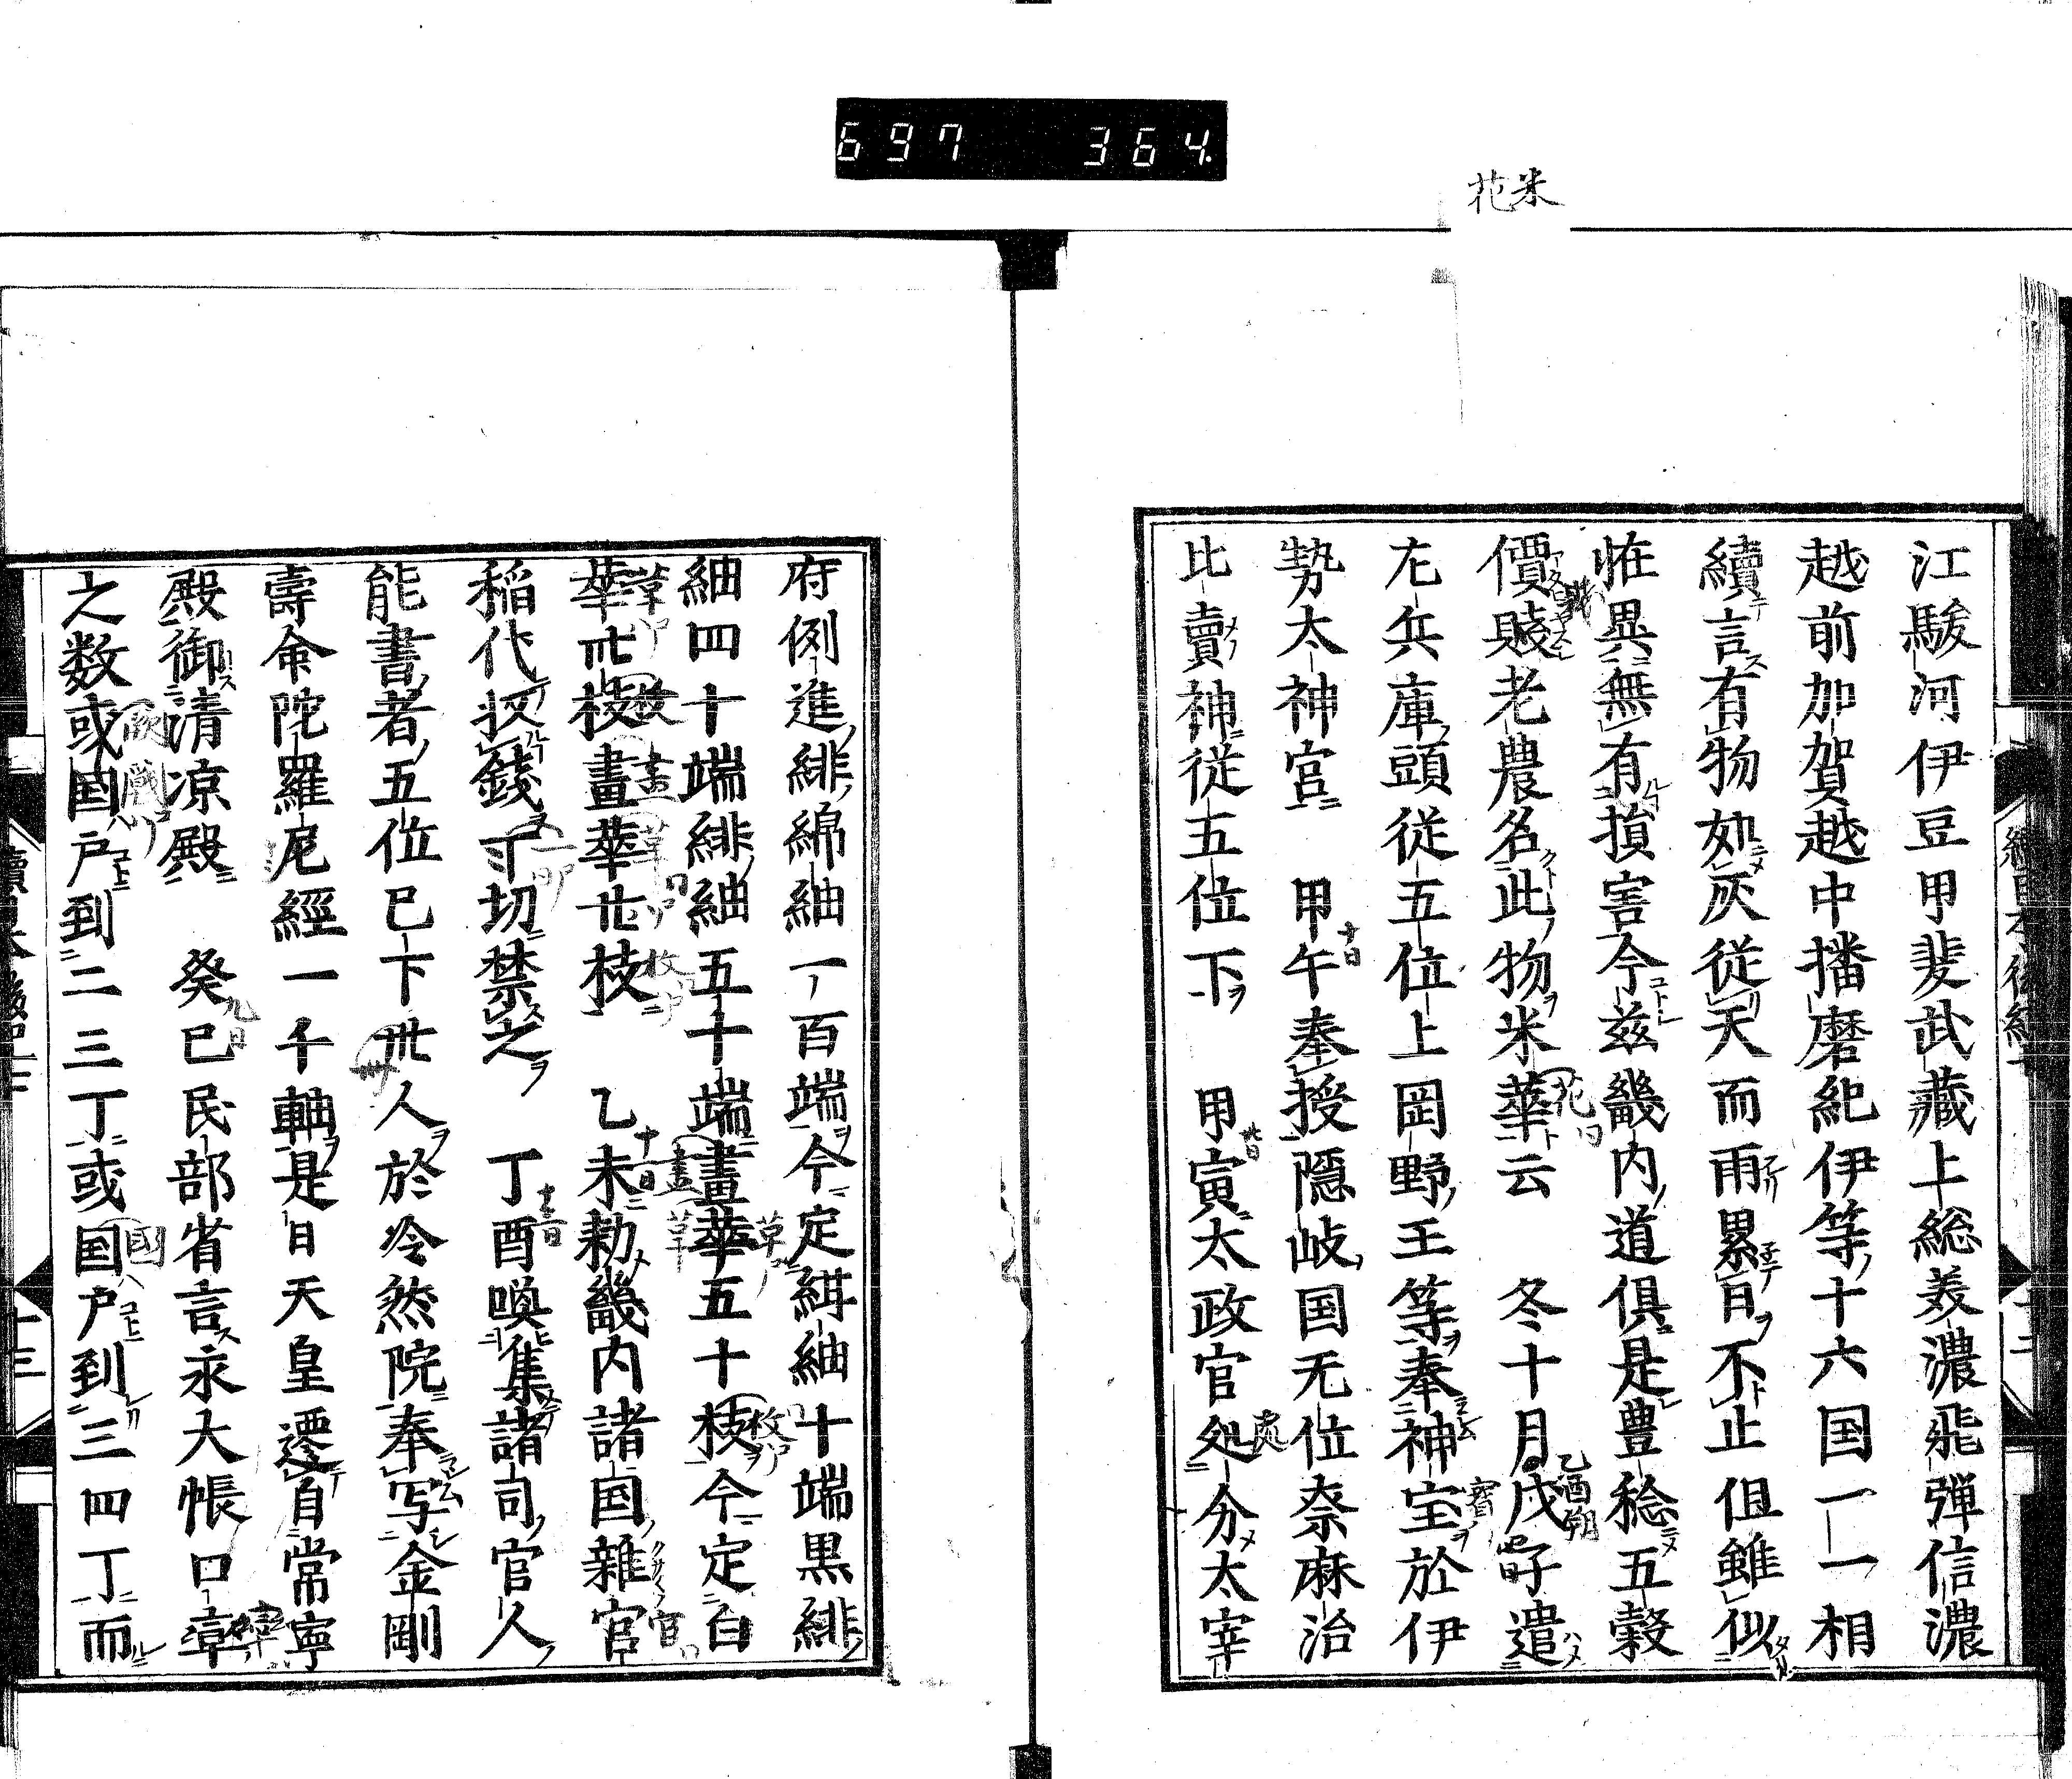 697 364.
米花
江駿河伊豆甲斐武藏上総美濃飛弾信濃
越前加賀越中播磨紀伊等十六国一一相
續言有物如灰従天而雨累旬不止但雖似
恠異無有損害今茲畿内七道俱是豊稔五穀
價賤老農名此物米華云　冬十月戊子遣
左兵庫頭従五位上岡野王等奉神宝於伊
勢太神宮　甲午奉授隠岐国无位奈麻治
比賣神従五位下　甲寅太政官処分太宰
府例進緋綿紬一百端今定緋紬十端黒緋
紬四十端緋紬五十端畫華五十枝今定白
華卅枝畫華廿枝　乙未勅畿内諸国雜官
稲代収錢一切禁之　丁酉喚集諸司官人
能書者五位已下卅人於冷然院奉写金剛
壽命陀羅尼經一千軸是日天皇遷自常寧
殿御清凉殿　癸巳民部省言永大帳口率
之数或国戸到二三丁或国戸到三四丁而